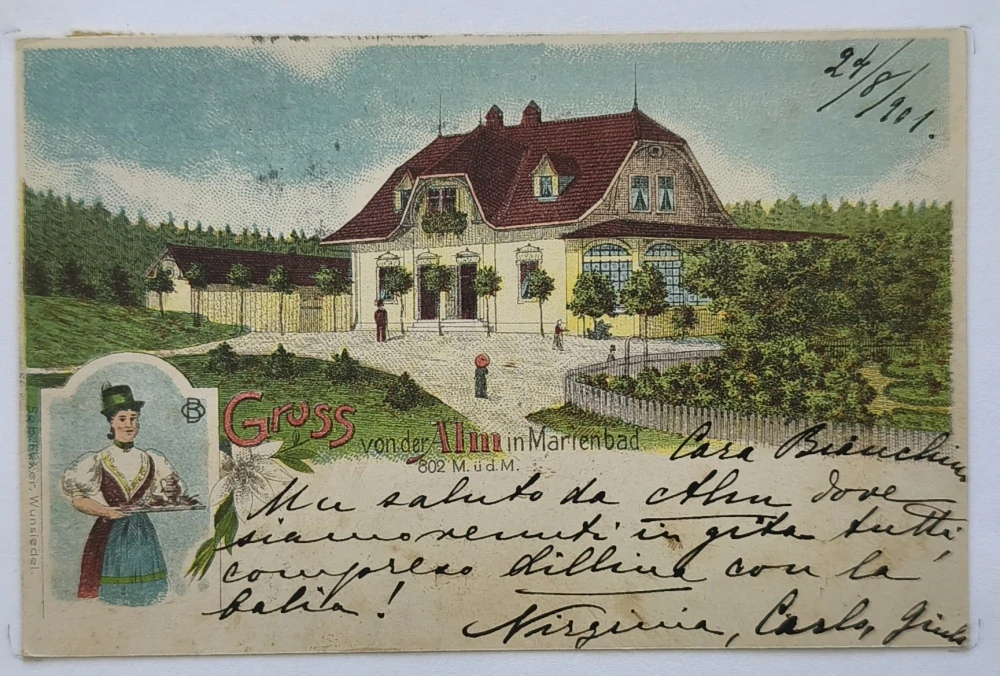 24/8/901.
Gruss von der Alm in Marienbad
802 M. ü d. M.
Cara Bianchina
Un saluto da Alm dove
siamo venuti in gita tutti,
compreso Lillina con la
balia!
Virginia, Carlo, Giulio
Wunsiedel.